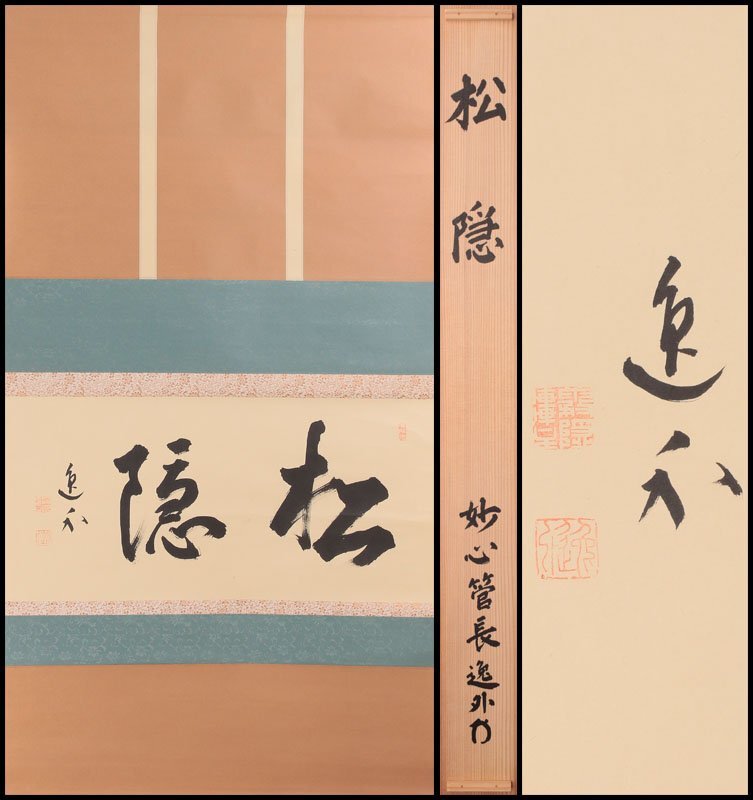 松隠
逸外
松隠
妙心管長逸外
逸外